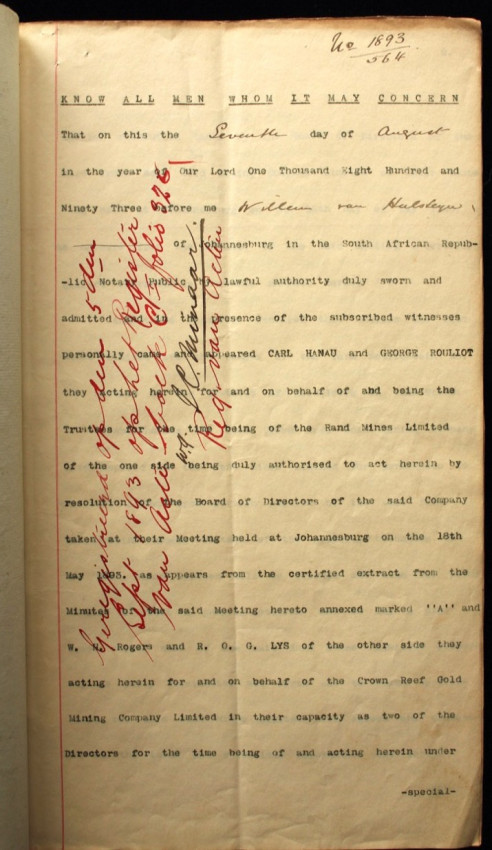 No 1893
564
KNOW ALL MEN WHOM IT MAY CONCERN
That on this the Seventh day of August
in the year of Our Lord One Thousand Eight Hundred and
Ninety Three before me Willem van Hulsteyn
of Johannesburg in the South African Repub-
-lic Notary Public by lawful authority duly sworn and
admitted and in the presence of the subscribed witnesses
personally came and appeared CARL HANAU and GEORGE ROULIOT
they acting herein for and on behalf of and being the
Trustees for the time being of the Rand Mines Limited
of the one side being duly authorised to act herein by
resolution of the Board of Directors of the said Company
taken at their Meeting held at Johannesburg on the 18th
May 1893. as appears from the certified extract from the
Minutes of the said Meeting hereto annexed marked ''A'' and
W. H. Rogers and R. O. G. LYS of the other side they
acting herein for and on behalf of the Crown Reef Gold
Mining Company Limited in their capacity as two of the
Directors for the time being of and acting herein under
-special-
Geregistreerd op den 5 den
Sept. 1893 op het Register
van Acten boek folio 226
w.g. J. C. Minnaar.
Reg. van Acten